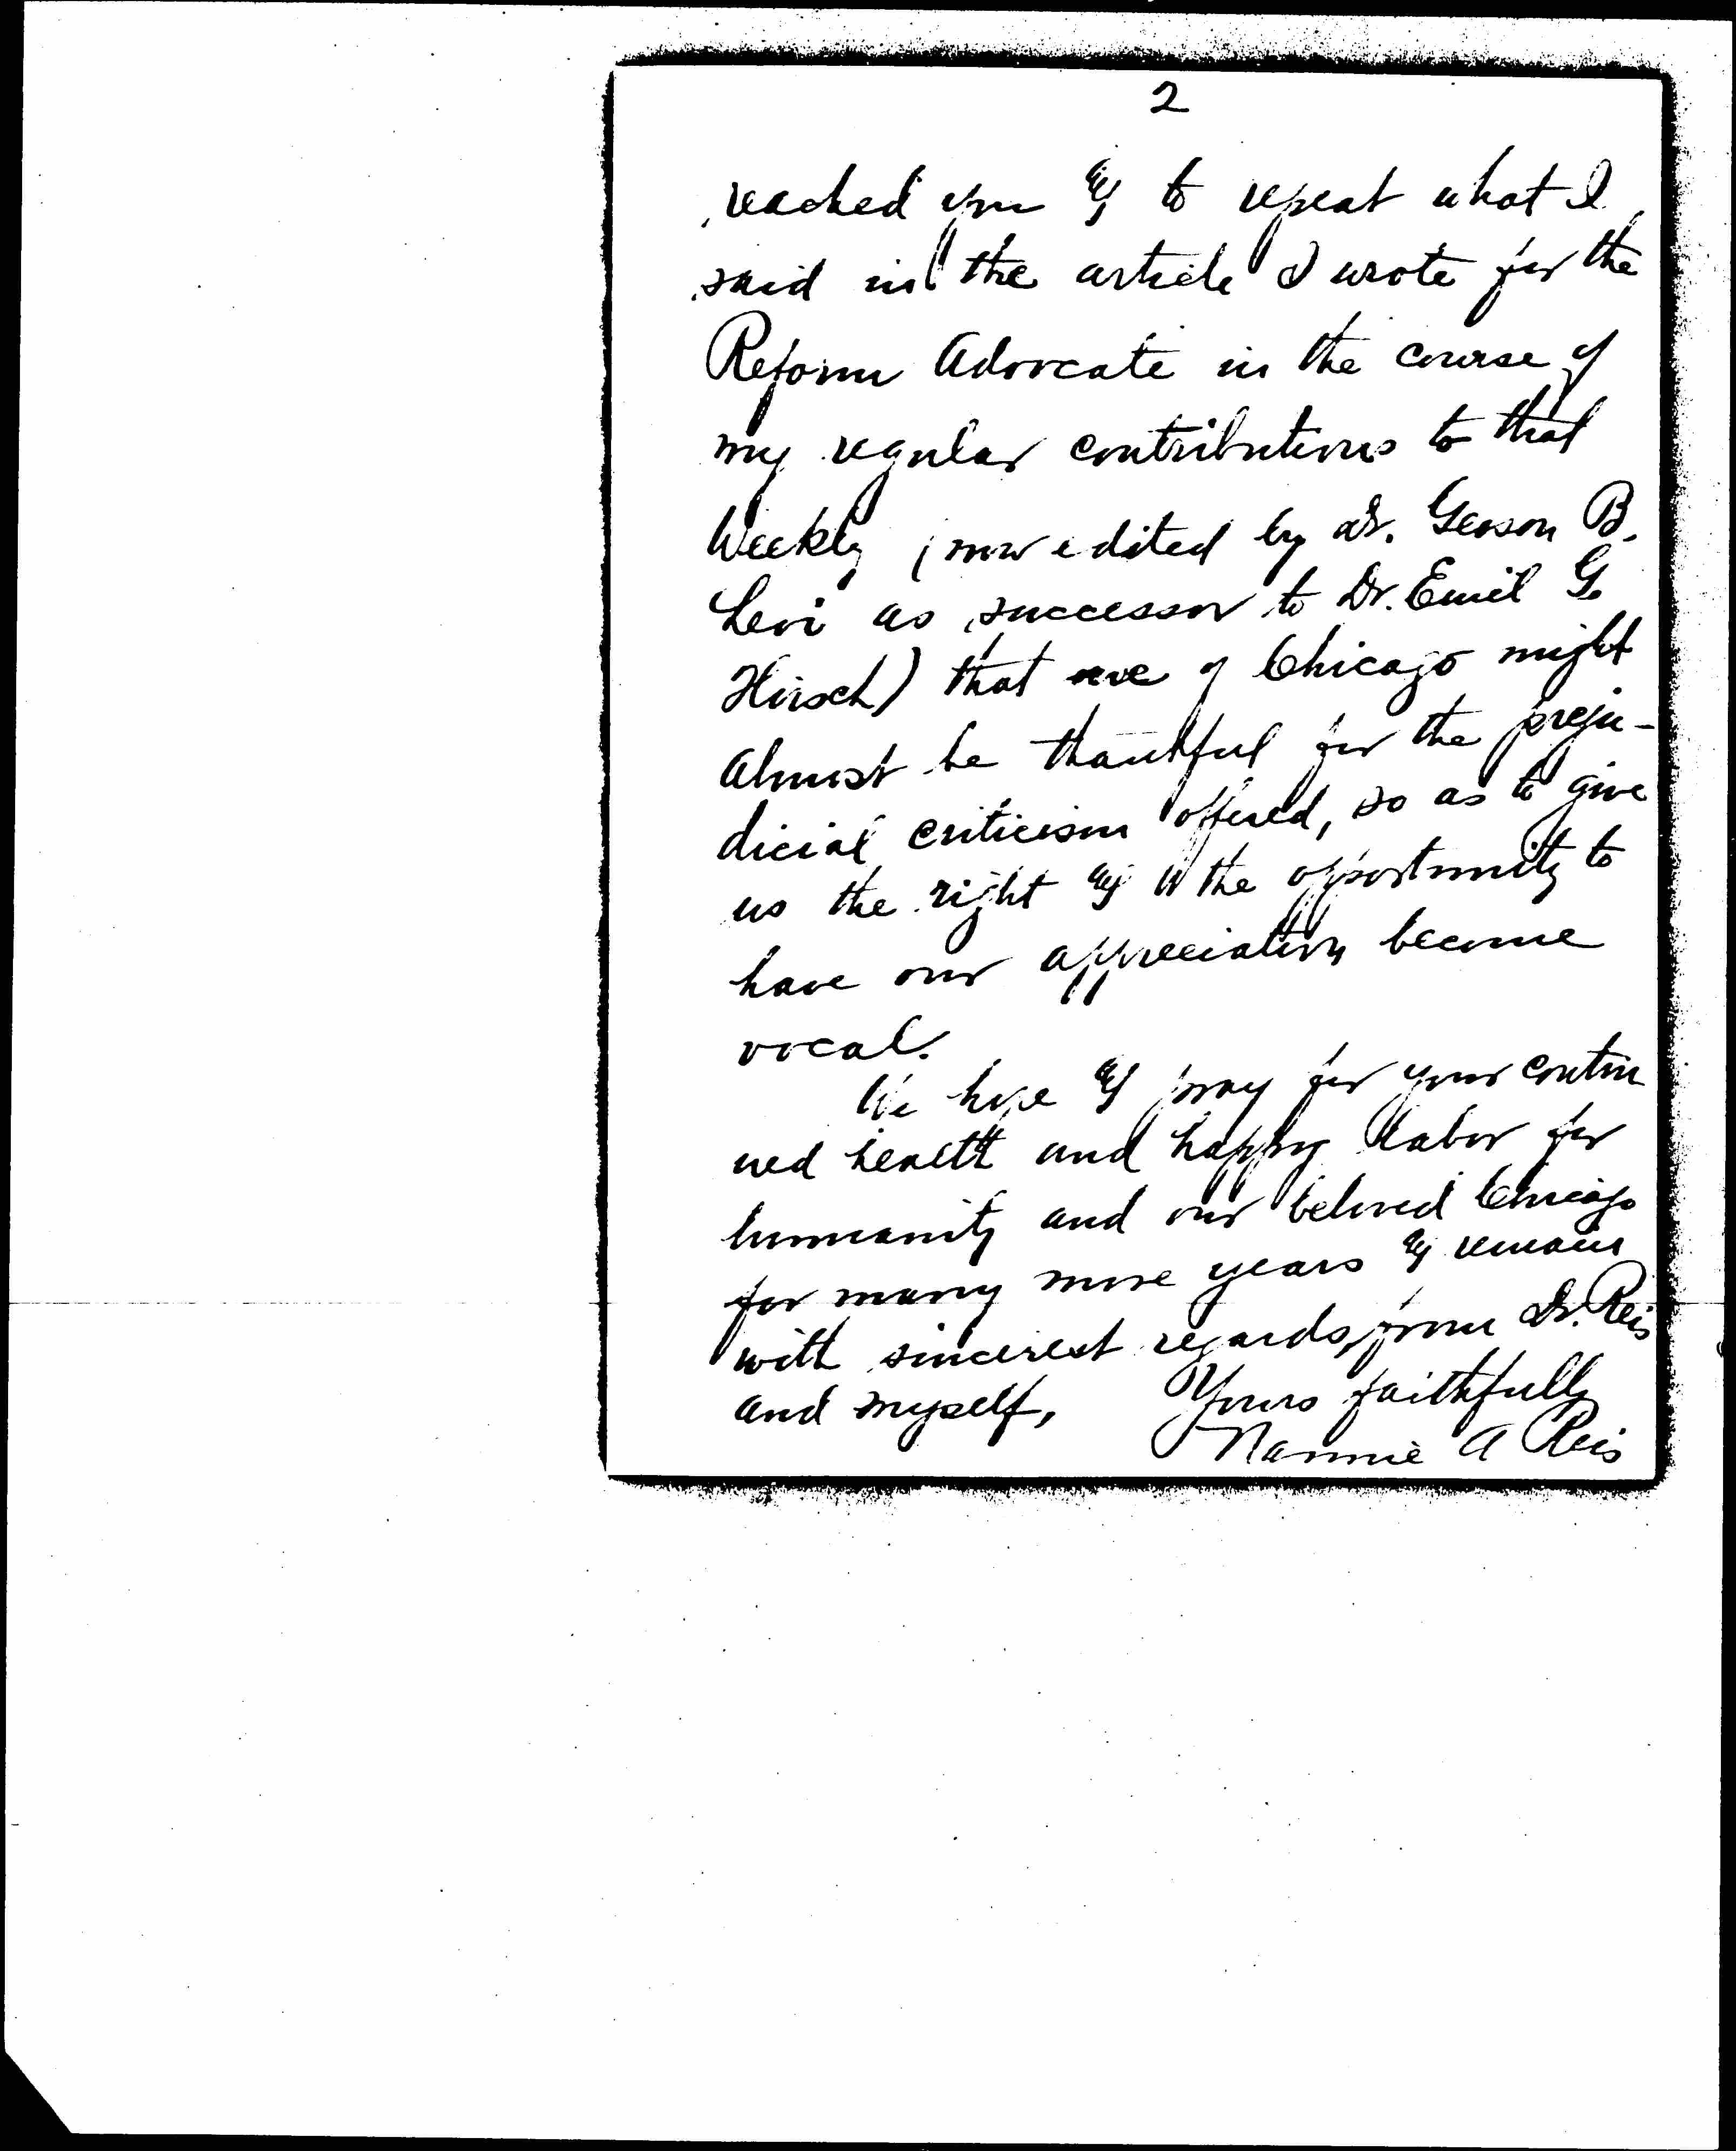 2
reached you & to repeat what I
said in the article I wrote for the
Reform Advocate in the course of
my regular contributions to that
Weekly (now edited by Dr. Gerson B.
Levi as successor to Dr. Emil G.
Hirsch) that we of Chicago might
almost be thankful for the preju-
dicial criticism offered, so as to give
us the right & the opportunity to
have our appreciation become
vocal.
We hope & pray for your contin
ued health and happy labor for
humanity and our beloved Chicago
for many more years & remain
with sincerest regards, from Dr. Reis
and myself, Yours faithfully
Nannie A Reis